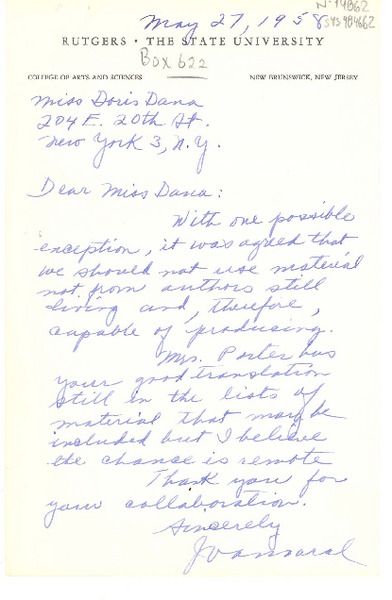 N-14862
SYS 984662
May 27, 1958
RUTGERS · THE STATE UNIVERSITY
BOX 622
COLLEGE OF ARTS AND SCIENCES NEW BRUNSWICK, NEW JERSEY
Miss Doris Dana
204 E. 20th St.
New York 3, N.Y.
Dear Miss Dana:
With one possible
exception, it was agreed that
we should not use material
not from authors still
living and, therefore,
capable of producing.
Mrs. Porter has
your good translation
still in the lists of
material that may be
included but I believe
the chance is remote
Thank you for
your collaboration.
Sincerely